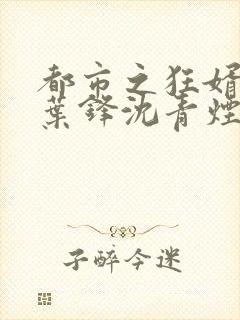 都市之狂婿
葉鋒沈青煙
子醉今迷